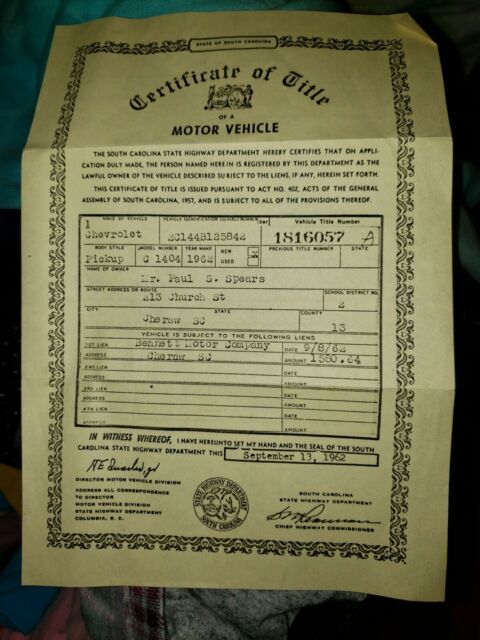 STATE OF SOUTH CAROLINA
Certificate of Title
OF A
MOTOR VEHICLE
THE SOUTH CAROLINA STATE HIGHWAY DEPARTMENT HEREBY CERTIFIES THAT ON APPLI-
CATION DULY MADE, THE PERSON NAMED HEREIN IS REGISTERED BY THIS DEPARTMENT AS THE
LAWFUL OWNER OF THE VEHICLE DESCRIBED SUBJECT TO THE LIENS, IF ANY, HEREIN SET FORTH.
THIS CERTIFICATE OF TITLE IS ISSUED PURSUANT TO ACT NO. 402, ACTS OF THE GENERAL
ASSEMBLY OF SOUTH CAROLINA, 1957, AND IS SUBJECT TO ALL OF THE PROVISIONS THEREOF.
1 MAKE OF VEHICLE VEHICLE IDENTIFICATION Vehicle Title Number
Chevrolet 2C144B125842 1816057 A
BODY STYLE MODEL NUMBER YEAR MAKE NEW PREVIOUS TITLE NUMBER STATE
Pickup C 1404 1962 USED
NAME OF OWNER
Mr. Paul S. Spears
STREET ADDRESS OR ROUTE SCHOOL DISTRICT NO.
213 Church St 2
CITY STATE COUNTY
Cheraw SC 13
VEHICLE IS SUBJECT TO THE FOLLOWING LIENS
1ST LIEN Bennett Motor Company DATE 9/8/62
ADDRESS Cheraw SC AMOUNT 1580.64
2ND LIEN DATE
ADDRESS AMOUNT
3RD LIEN DATE
ADDRESS AMOUNT
4TH LIEN DATE
ADDRESS AMOUNT
IN WITNESS WHEREOF, I HAVE HEREUNTO SET MY HAND AND THE SEAL OF THE SOUTH
CAROLINA STATE HIGHWAY DEPARTMENT THIS September 13, 1962
DIRECTOR MOTOR VEHICLE DIVISION
ADDRESS ALL CORRESPONDENCE
TO DIRECTOR
MOTOR VEHICLE DIVISION
STATE HIGHWAY DEPARTMENT
COLUMBIA, S. C.
STATE HIGHWAY DEPARTMENT
SOUTH CAROLINA
SOUTH CAROLINA
STATE HIGHWAY DEPARTMENT
CHIEF HIGHWAY COMMISSIONER